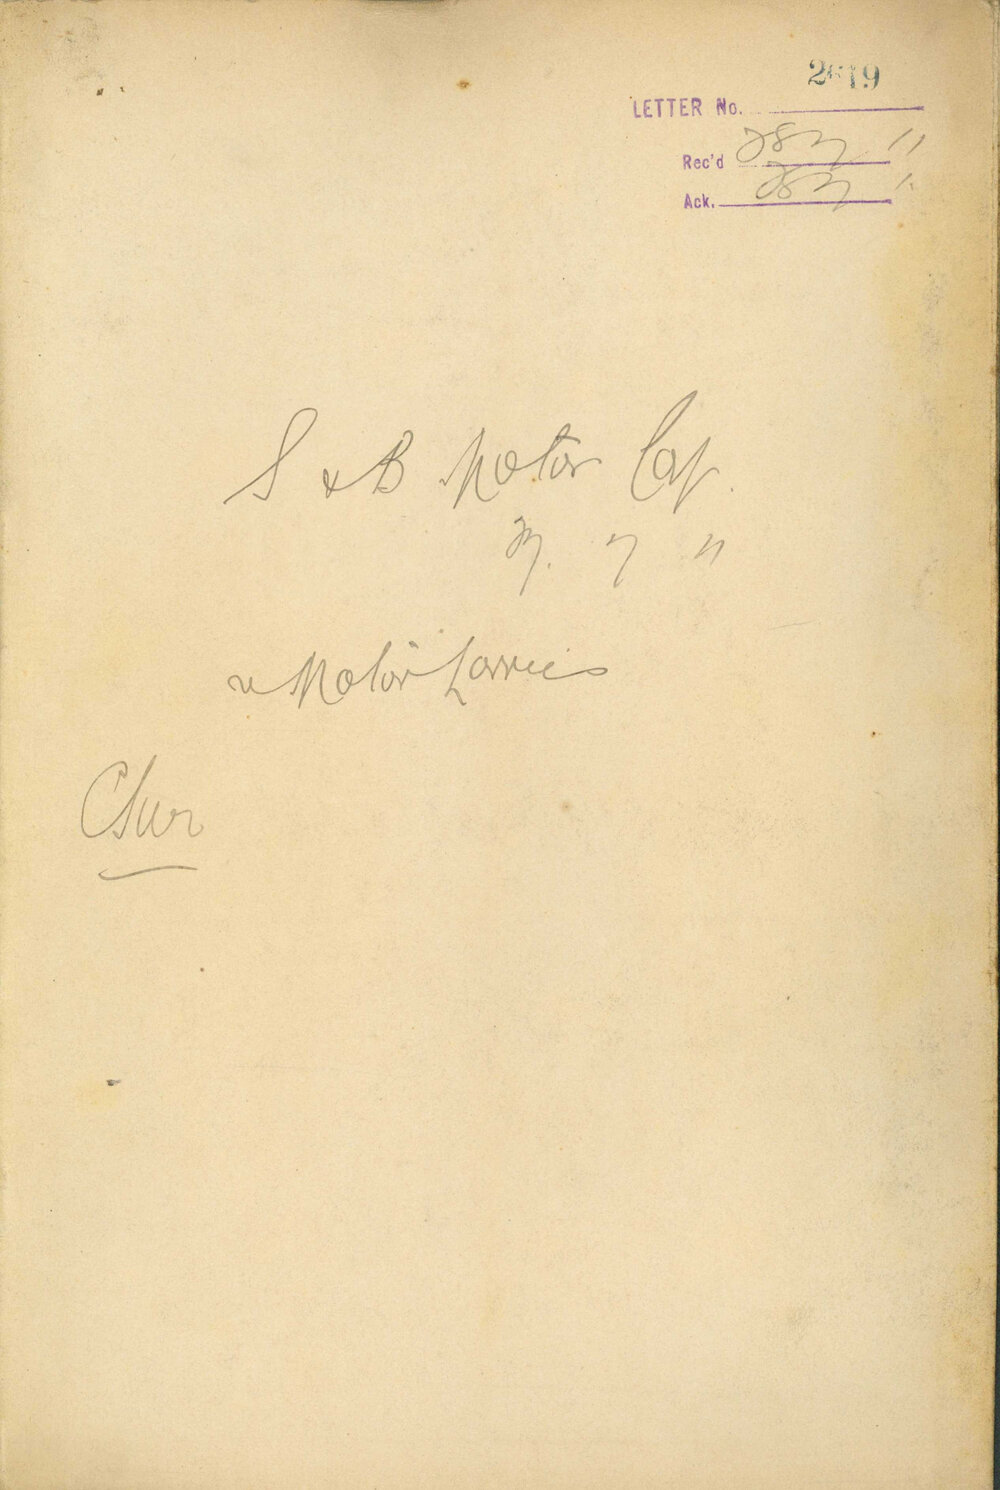 2619
LETTER No.
Rec'd 28 7 11
Ack. 28 7 11
S & B Motor Coy.
27. 7 11
Motor Lorries